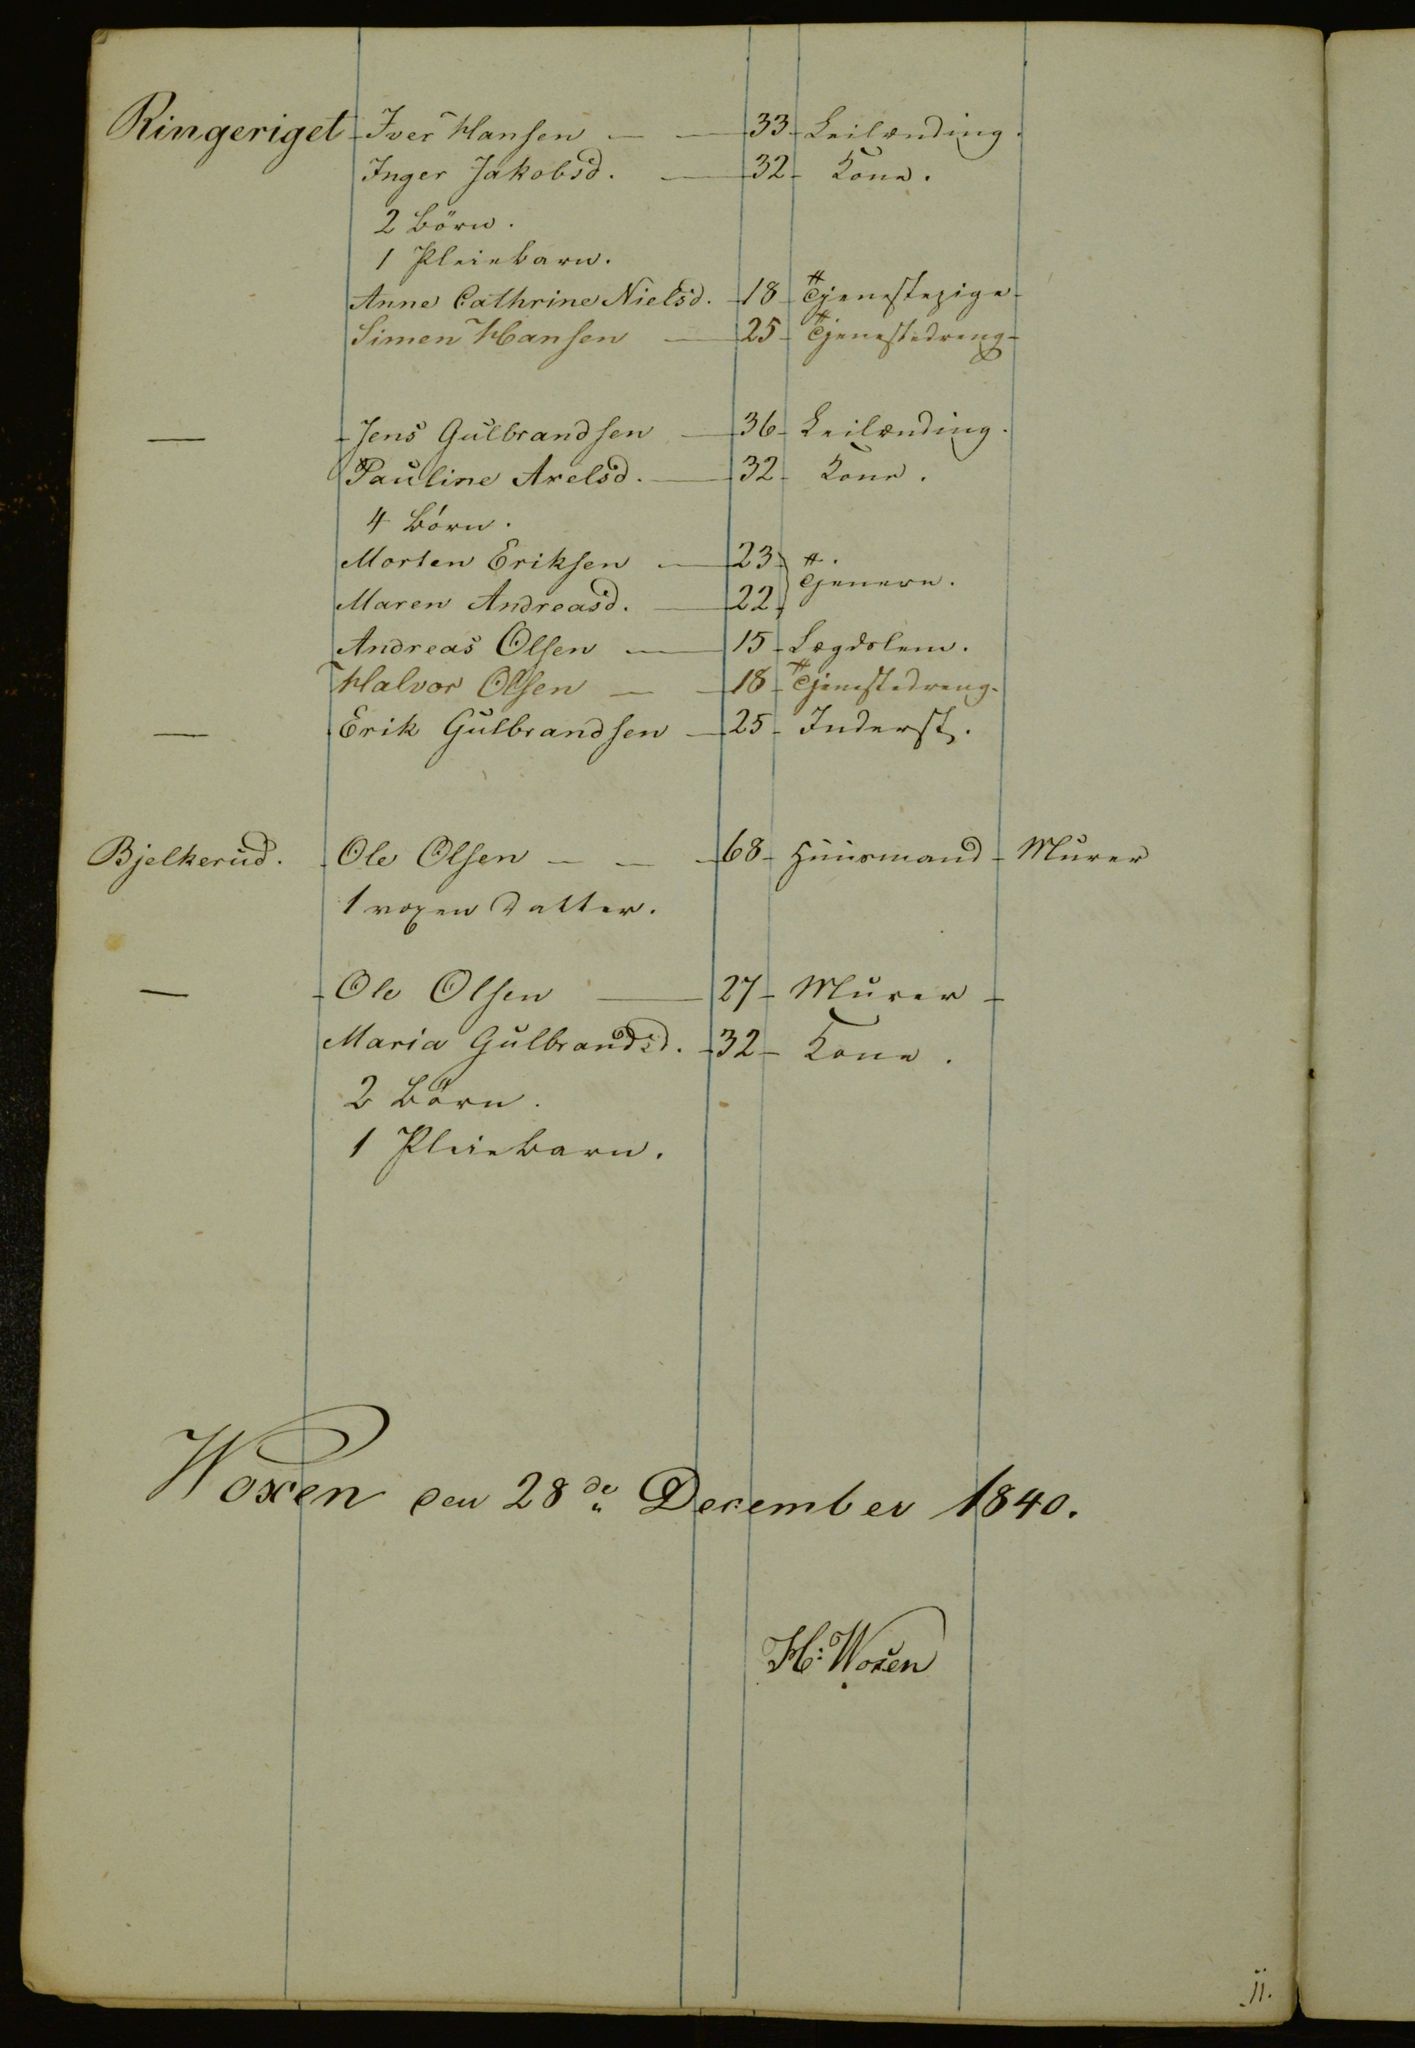 Ringeriget - Iver Hansen — — 33 - Leilænding.
Inger Jakobsd. — 32 - Kone.
2 Börn.
1 Pleiebarn.
Anne Cathrine Nielsd. - 18 - Tjenestepige -
Simen Hansen — 25 - Tjenestedreng -
— - Jens Gulbrandsen — 36 - Leilænding.
Pauline Axelsd. — 32 - Kone.
4 Börn.
Morten Eriksen — 23
Tjenere.
Maren Andreasd. — 22
Andreas Olsen — 15 - Lægdslem.
Halvor Olsen — - 18 - Tjenestedreng.
— Erik Gulbrandsen — 25 - Inderst.
Bjelkerud. - Ole Olsen — — - 68 - Huusmand - Murer
1 voxen Datter.
— - Ole Olsen — 27 - Murer -
Maria Gulbrandsd. - 32 - Kone.
2 Börn.
1 Pleiebarn.
Woxen den 28de December 1840.
H: Woxen
11.